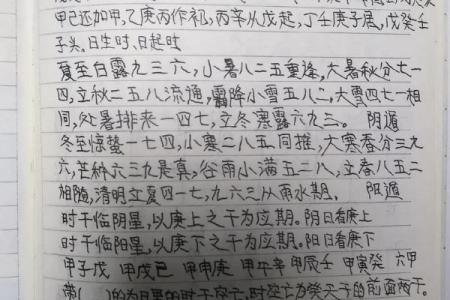 甲己还加甲,乙庚丙作初,丙辛从戊起,丁壬庚子居,戊癸壬
子头,日生时,日起时
夏至白露九三六,小暑八二五重逢,大暑秋分七一
四,立秋二五八流通,霜降小雪五八二,大雪四七一相
同,处暑排来一四七,立冬寒露六九三。 阴遁
冬至惊蛰一七四,小寒二八五同推,大寒春分三九
六,芒种六三九是真,谷雨小满五二八,立春八五二
相随,清明立夏四一七,九六三从雨水期。 阳遁
时干临阴星,以庚上之干为应期。阴日看庚上
时干临阳星,以庚下之干为应期。阳日看庚下
甲子戊 甲戌己 甲申庚 甲午辛 甲辰壬 甲寅癸 六甲